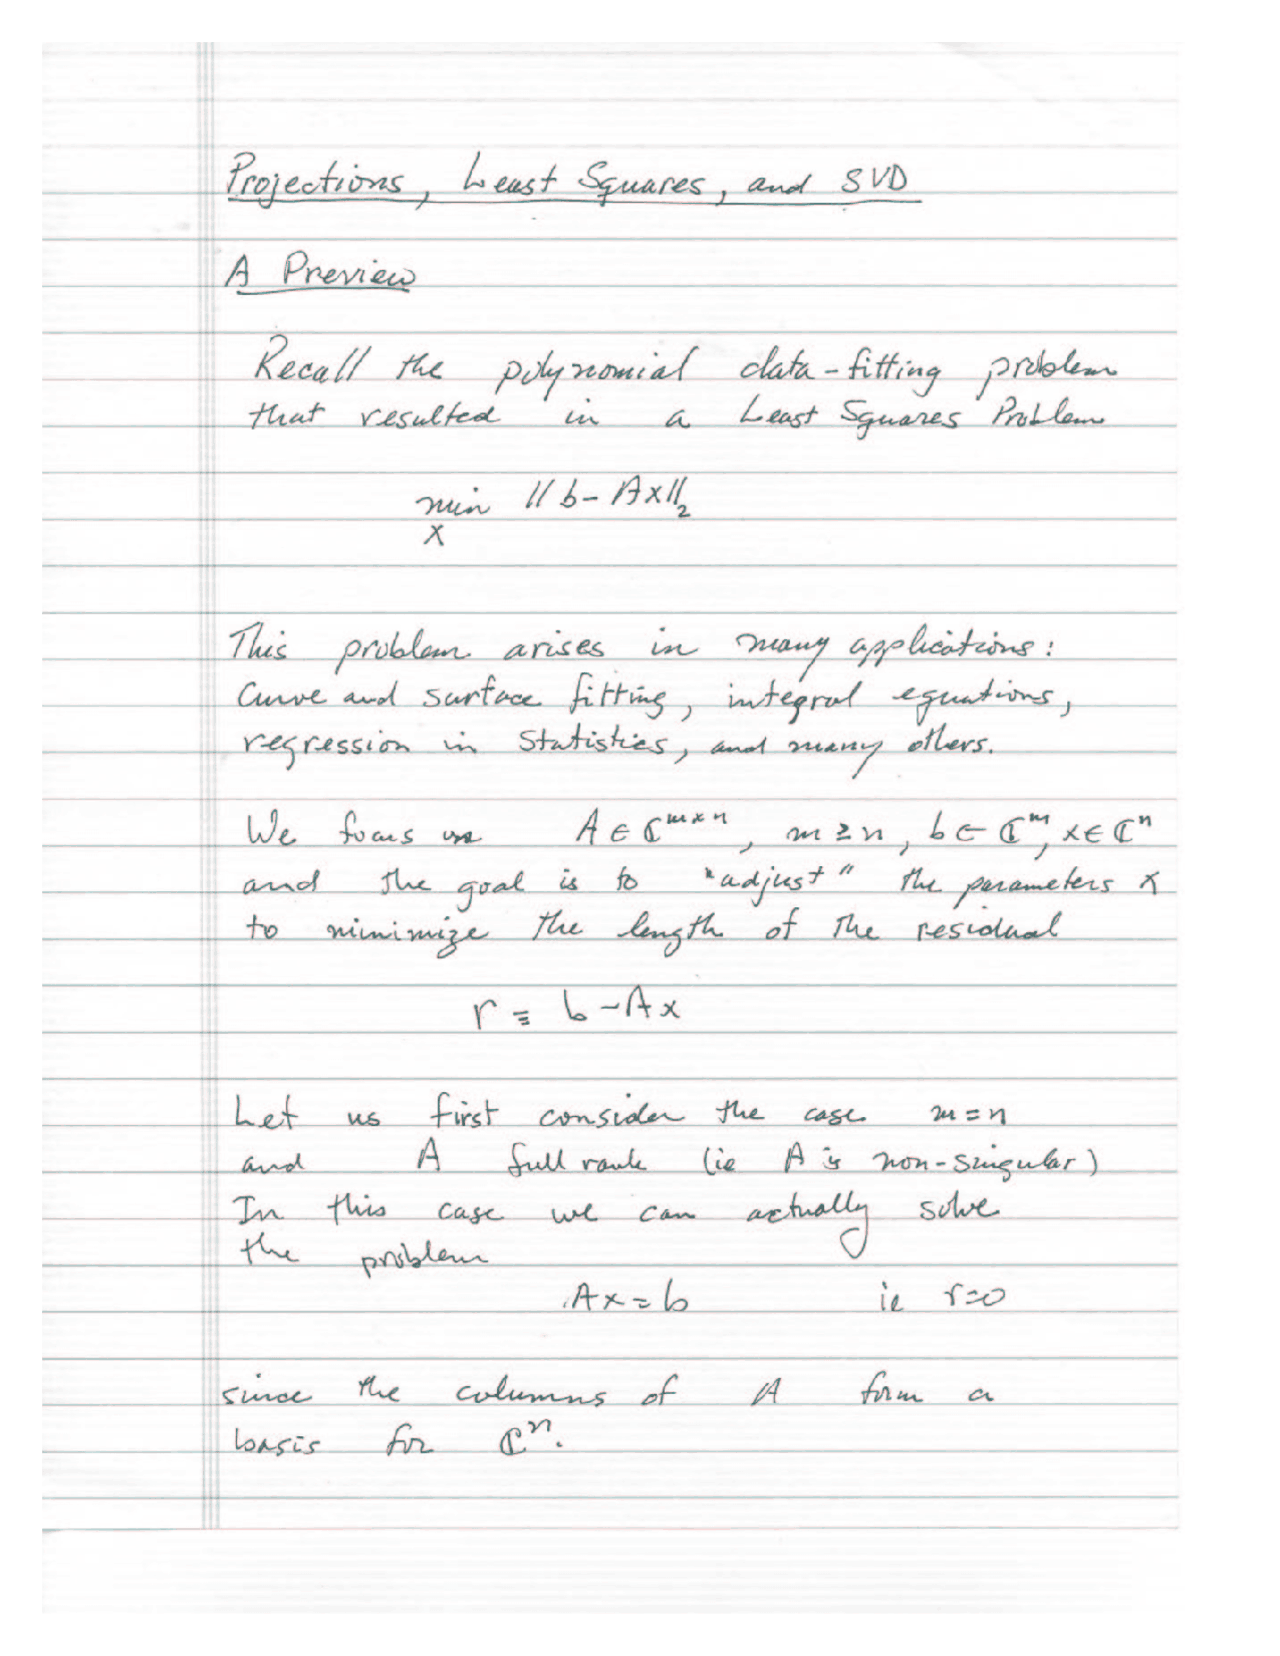 Projections, Least Squares, and SVD
A Preview
Recall the polynomial data-fitting problem
that resulted in a Least Squares Problem
min ‖b-Ax‖₂
x
This problem arises in many applications:
Curve and surface fitting, integral equations,
regression in Statistics, and many others.
We focus on A ∈ ℂ^{m×n}, m ≥ n, b ∈ ℂ^m, x ∈ ℂ^n
and the goal is to "adjust" the parameters x
to minimize the length of the residual
r ≡ b-Ax
Let us first consider the case m=n
and A full rank (ie A is non-singular)
In this case we can actually solve
the problem
Ax=b ie r=0
since the columns of A form a
basis for ℂ^n.